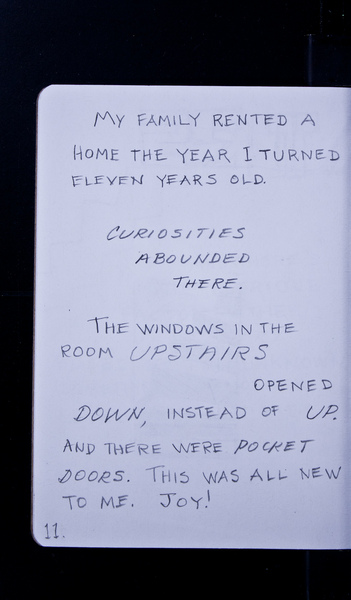 MY FAMILY RENTED A
HOME THE YEAR I TURNED
ELEVEN YEARS OLD.
CURIOSITIES
ABOUNDED
THERE.
THE WINDOWS IN THE
ROOM UPSTAIRS
OPENED
DOWN, INSTEAD OF UP.
AND THERE WERE POCKET
DOORS. THIS WAS ALL NEW
TO ME. JOY!
11.